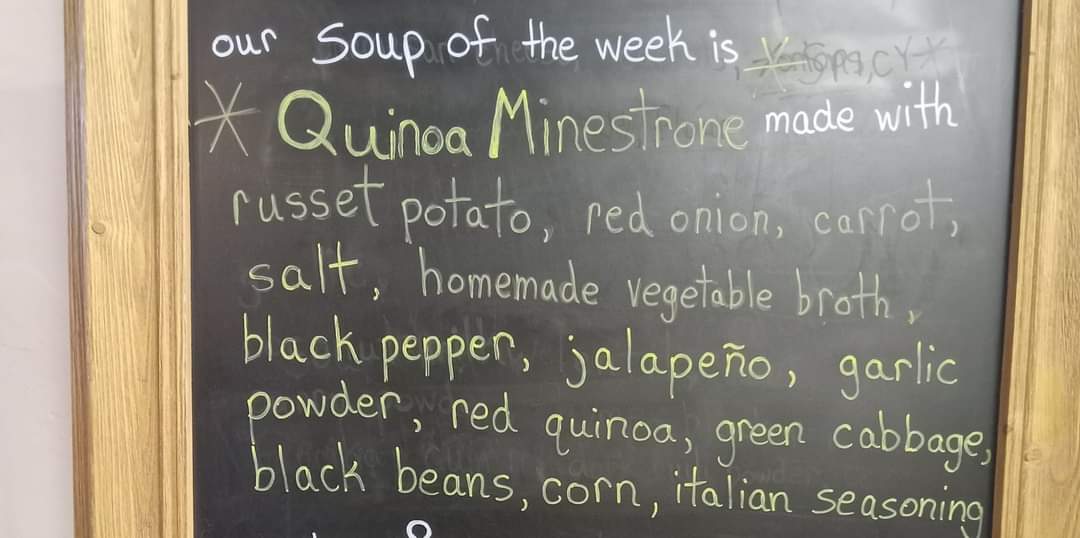 our soup of the week is
* Quinoa Minestrone made with
russet potato, red onion, carrot,
salt, homemade vegetable broth,
black pepper, jalapeño, garlic
powder, red quinoa, green cabbage,
black beans, corn, italian seasoning